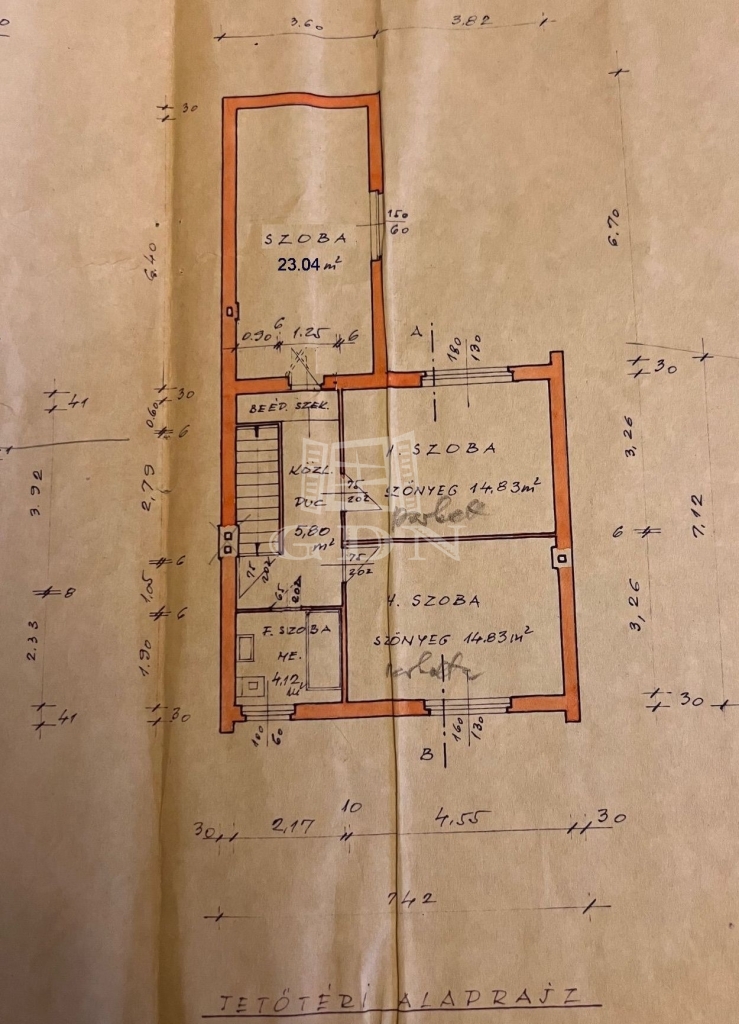 3.60
3.82
30
6.40
6.70
150
60
SZOBA
23.04 m²
0.90
6
1.25
6
A
180
130
30
30
0.60
41
6
BEÉP. SZEK.
1. SZOBA
SZŐNYEG 14.83 m²
75
202
KÖZL.
5,80
m²
GDN
3,26
7,12
6
3.92
2,79
6
8
1.05
6
75
202
65
202
75
202
4. SZOBA
SZŐNYEG 14.83 m²
3,26
F. SZOBA
ME.
4.12
m²
2.33
1.90
41
30
30
100
60
160
130
B
10
30
2,17
4,55
30
742
TETŐTÉRI ALAPRAJZ